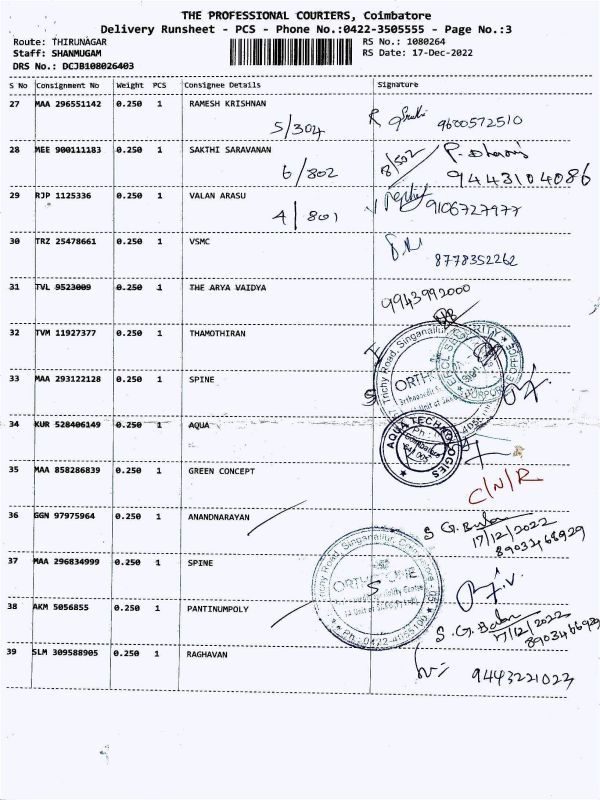 THE PROFESSIONAL COURIERS, Coimbatore
Delivery Runsheet - PCS - Phone No.:0422-3505555 - Page No.:3
Route: THIRUNAGAR RS No.: 1080264
Staff: SHANMUGAM RS Date: 17-Dec-2022
DRS No.: DCJB108026403
S No Consignment No Weight PCS Consignee Details Signature
27 MAA 296551142 0.250 1 RAMESH KRISHNAN
5/304 9600572510
28 MEE 900111183 0.250 1 SAKTHI SARAVANAN 8/502
6/802 9443104086
29 RJP 1125336 0.250 1 VALAN ARASU
4/801 9106727977
30 TRZ 25478661 0.250 1 VSMC
8778352262
31 TVL 9523009 0.250 1 THE ARYA VAIDYA 9943992000
32 TVM 11927377 0.250 1 THAMOTHIRAN
Trichy Road, Singanallur
33 MAA 293122128 0.250 1 SPINE
34 KUR 528406149 0.250 1 AQUA
AQUA TECHNOLOGIES
35 MAA 858286839 0.250 1 GREEN CONCEPT
C/N/R
36 GGN 97975964 0.250 1 ANANDNARAYAN
17/12/2022
37 MAA 296834999 0.250 1 SPINE
Trichy Road, Singanallur, Coimbatore
38 AKM 5056855 0.250 1 PANTINUMPOLY
17/12/2022
39 SLM 309588905 0.250 1 RAGHAVAN
9443221023